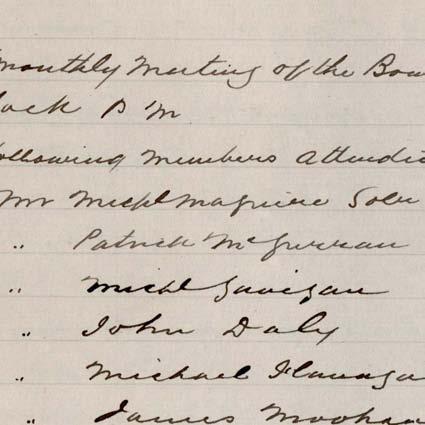 monthly Meeting of the Boa
lock P M
ollowing members attendi
Mr Michl Maguire Solr
" Patrick McGurran
" Michl Gavigan
" John Daly
" Michael Flanaga
" James Moohan